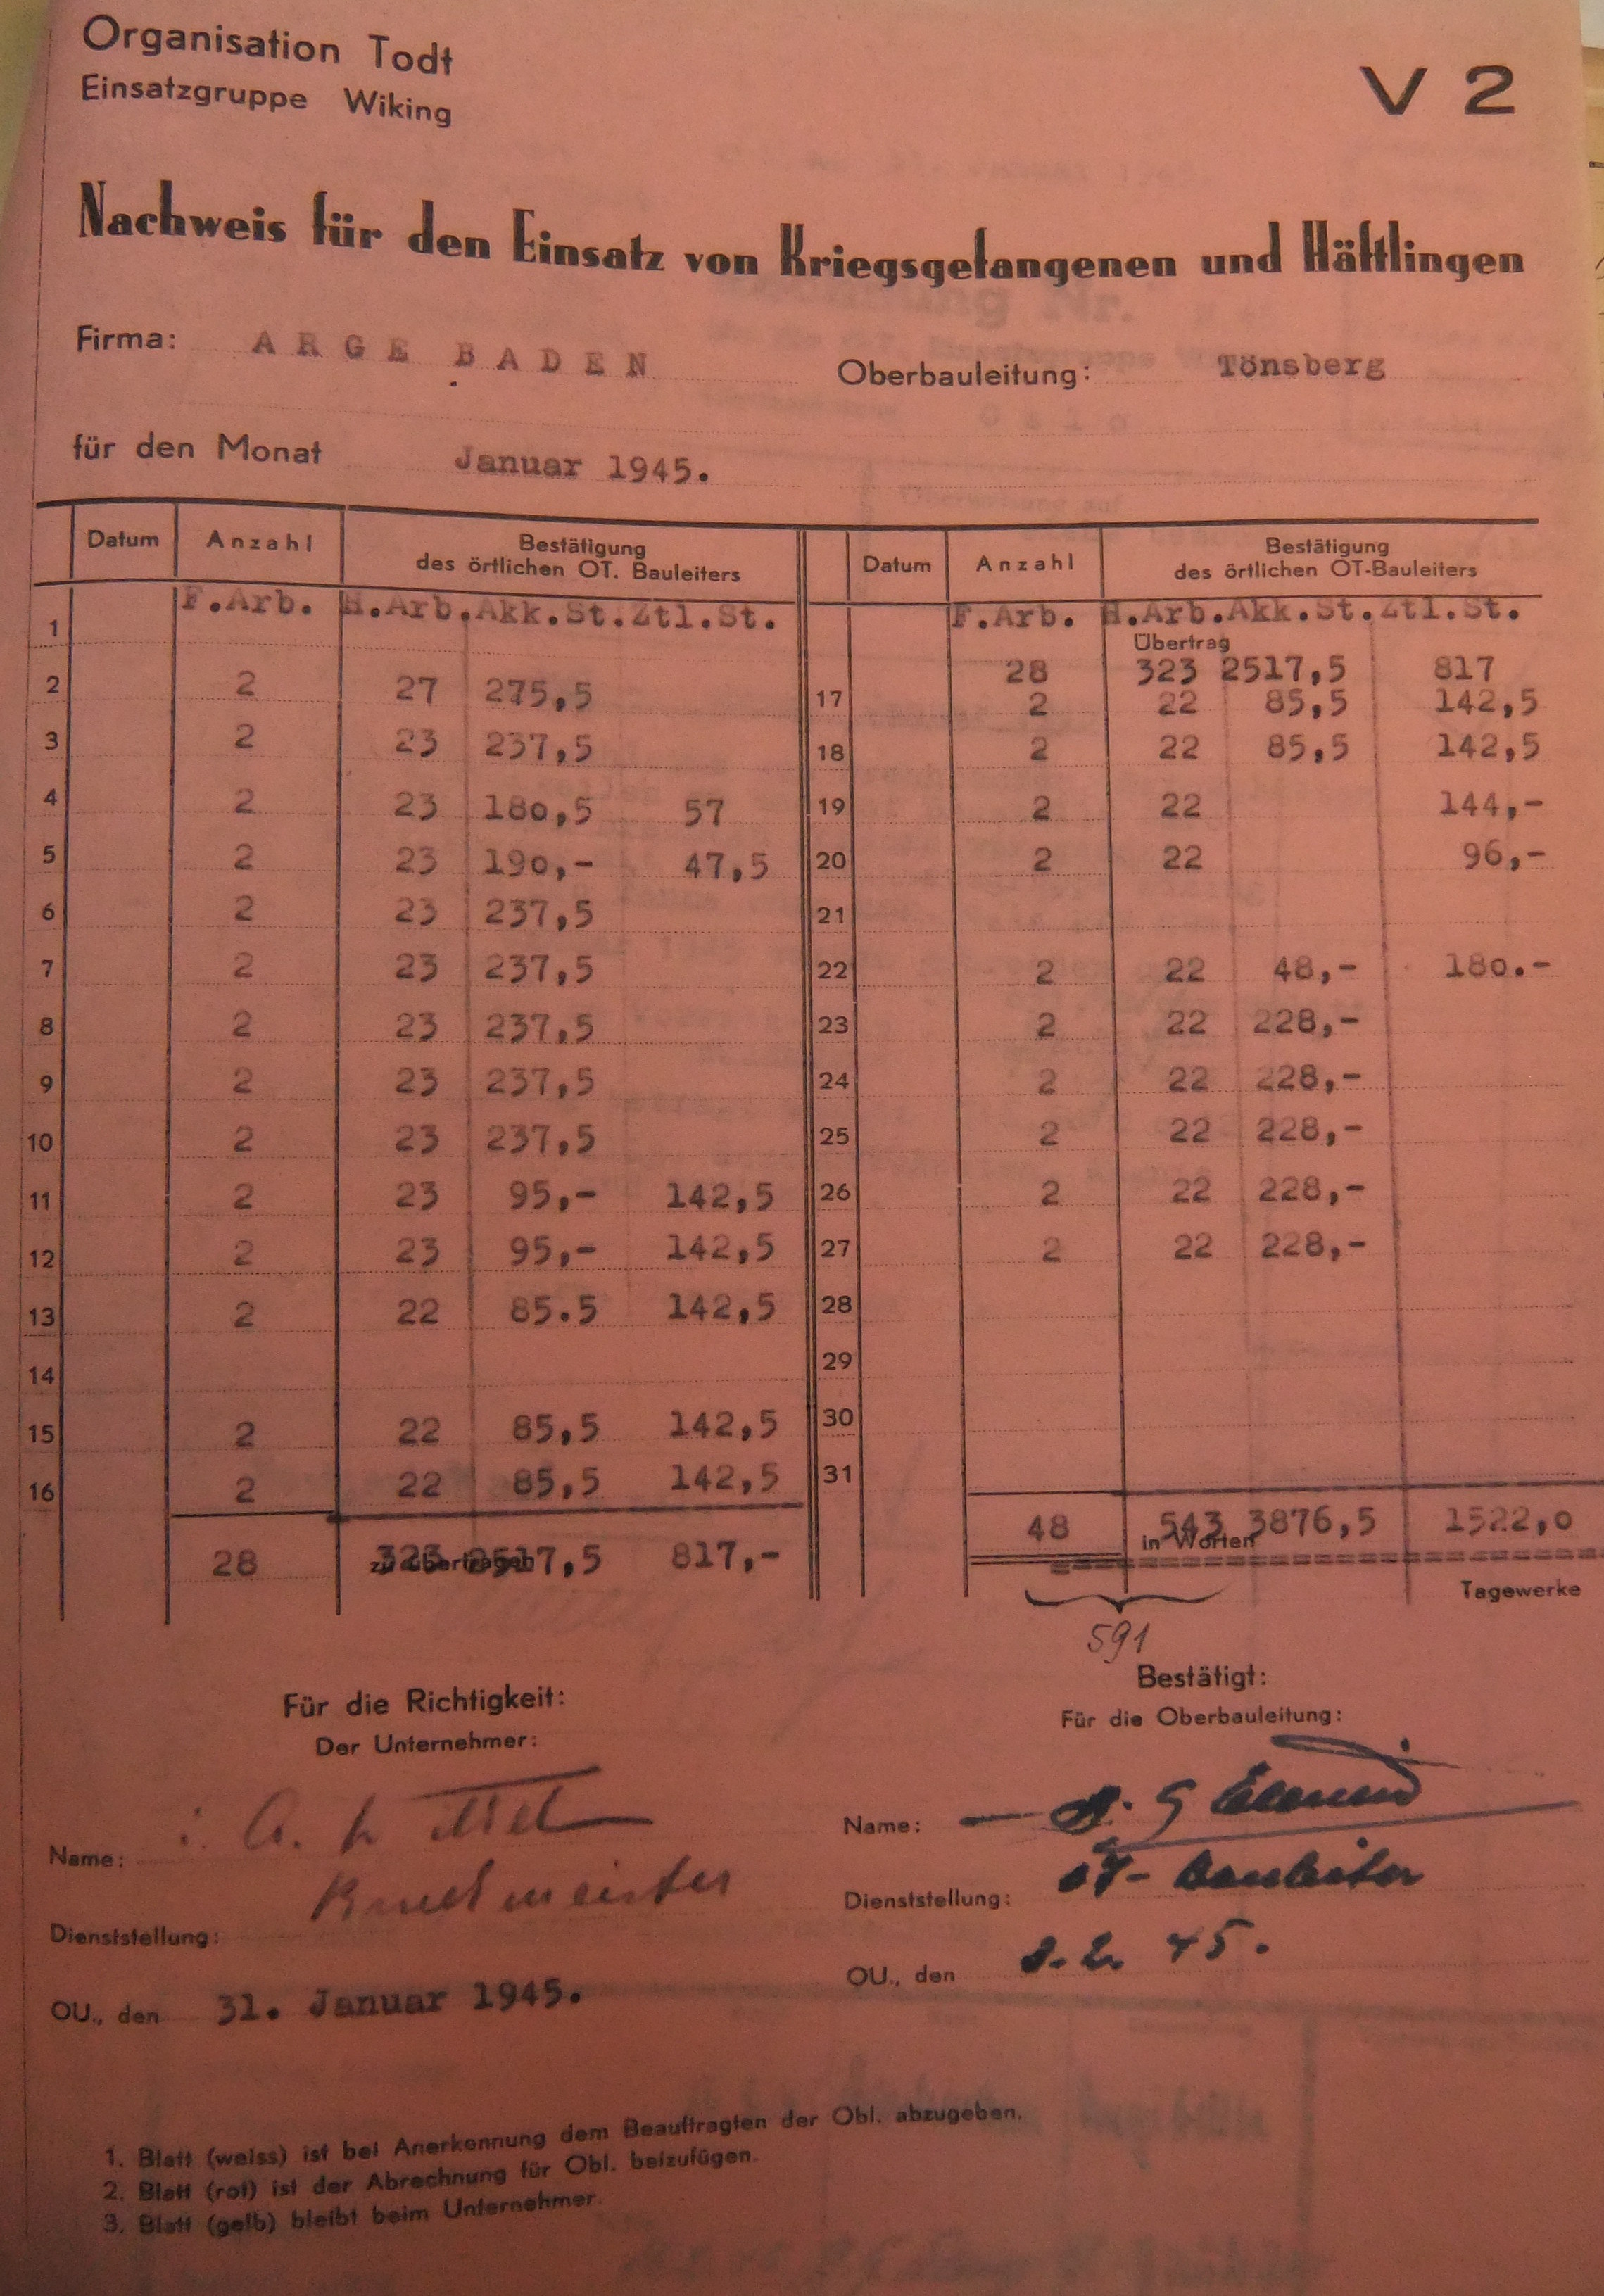 Organisation Todt
Einsatzgruppe Wiking
V 2
Nachweis für den Einsatz von Kriegsgefangenen und Häftlingen
Firma: ARGE BADEN Oberbauleitung: Tönsberg
für den Monat Januar 1945.
Datum Anzahl Bestätigung des örtlichen OT. Bauleiters
F.Arb. H.Arb. Akk.St. Ztl.St.
1
2 2 27 275,5
3 2 23 237,5
4 2 23 180,5 57
5 2 23 190,- 47,5
6 2 23 237,5
7 2 23 237,5
8 2 23 237,5
9 2 23 237,5
10 2 23 237,5
11 2 23 95,- 142,5
12 2 23 95,- 142,5
13 2 22 85.5 142,5
14
15 2 22 85,5 142,5
16 2 22 85,5 142,5
28 zu übertragen 323 2517,5 817,-
Datum Anzahl Bestätigung des örtlichen OT-Bauleiters
F.Arb. H.Arb. Akk.St. Ztl.St.
Übertrag
28 323 2517,5 817
17 2 22 85,5 142,5
18 2 22 85,5 142,5
19 2 22 144,-
20 2 22 96,-
21
22 2 22 48,- 180.-
23 2 22 228,-
24 2 22 228,-
25 2 22 228,-
26 2 22 228,-
27 2 22 228,-
28
29
30
31
48 543 3876,5 1522,0
in Worten
Tagewerke
591
Für die Richtigkeit:
Der Unternehmer:
Name: i. A.
Dienststellung:
OU., den 31. Januar 1945.
Bestätigt:
Für die Oberbauleitung:
Name:
Dienststellung: OT-Bauleiter
OU., den 2. 45.
1. Blatt (weiss) ist bei Anerkennung dem Beauftragten der Obl. abzugeben.
2. Blatt (rot) ist der Abrechnung für Obl. beizufügen.
3. Blatt (gelb) bleibt beim Unternehmer.